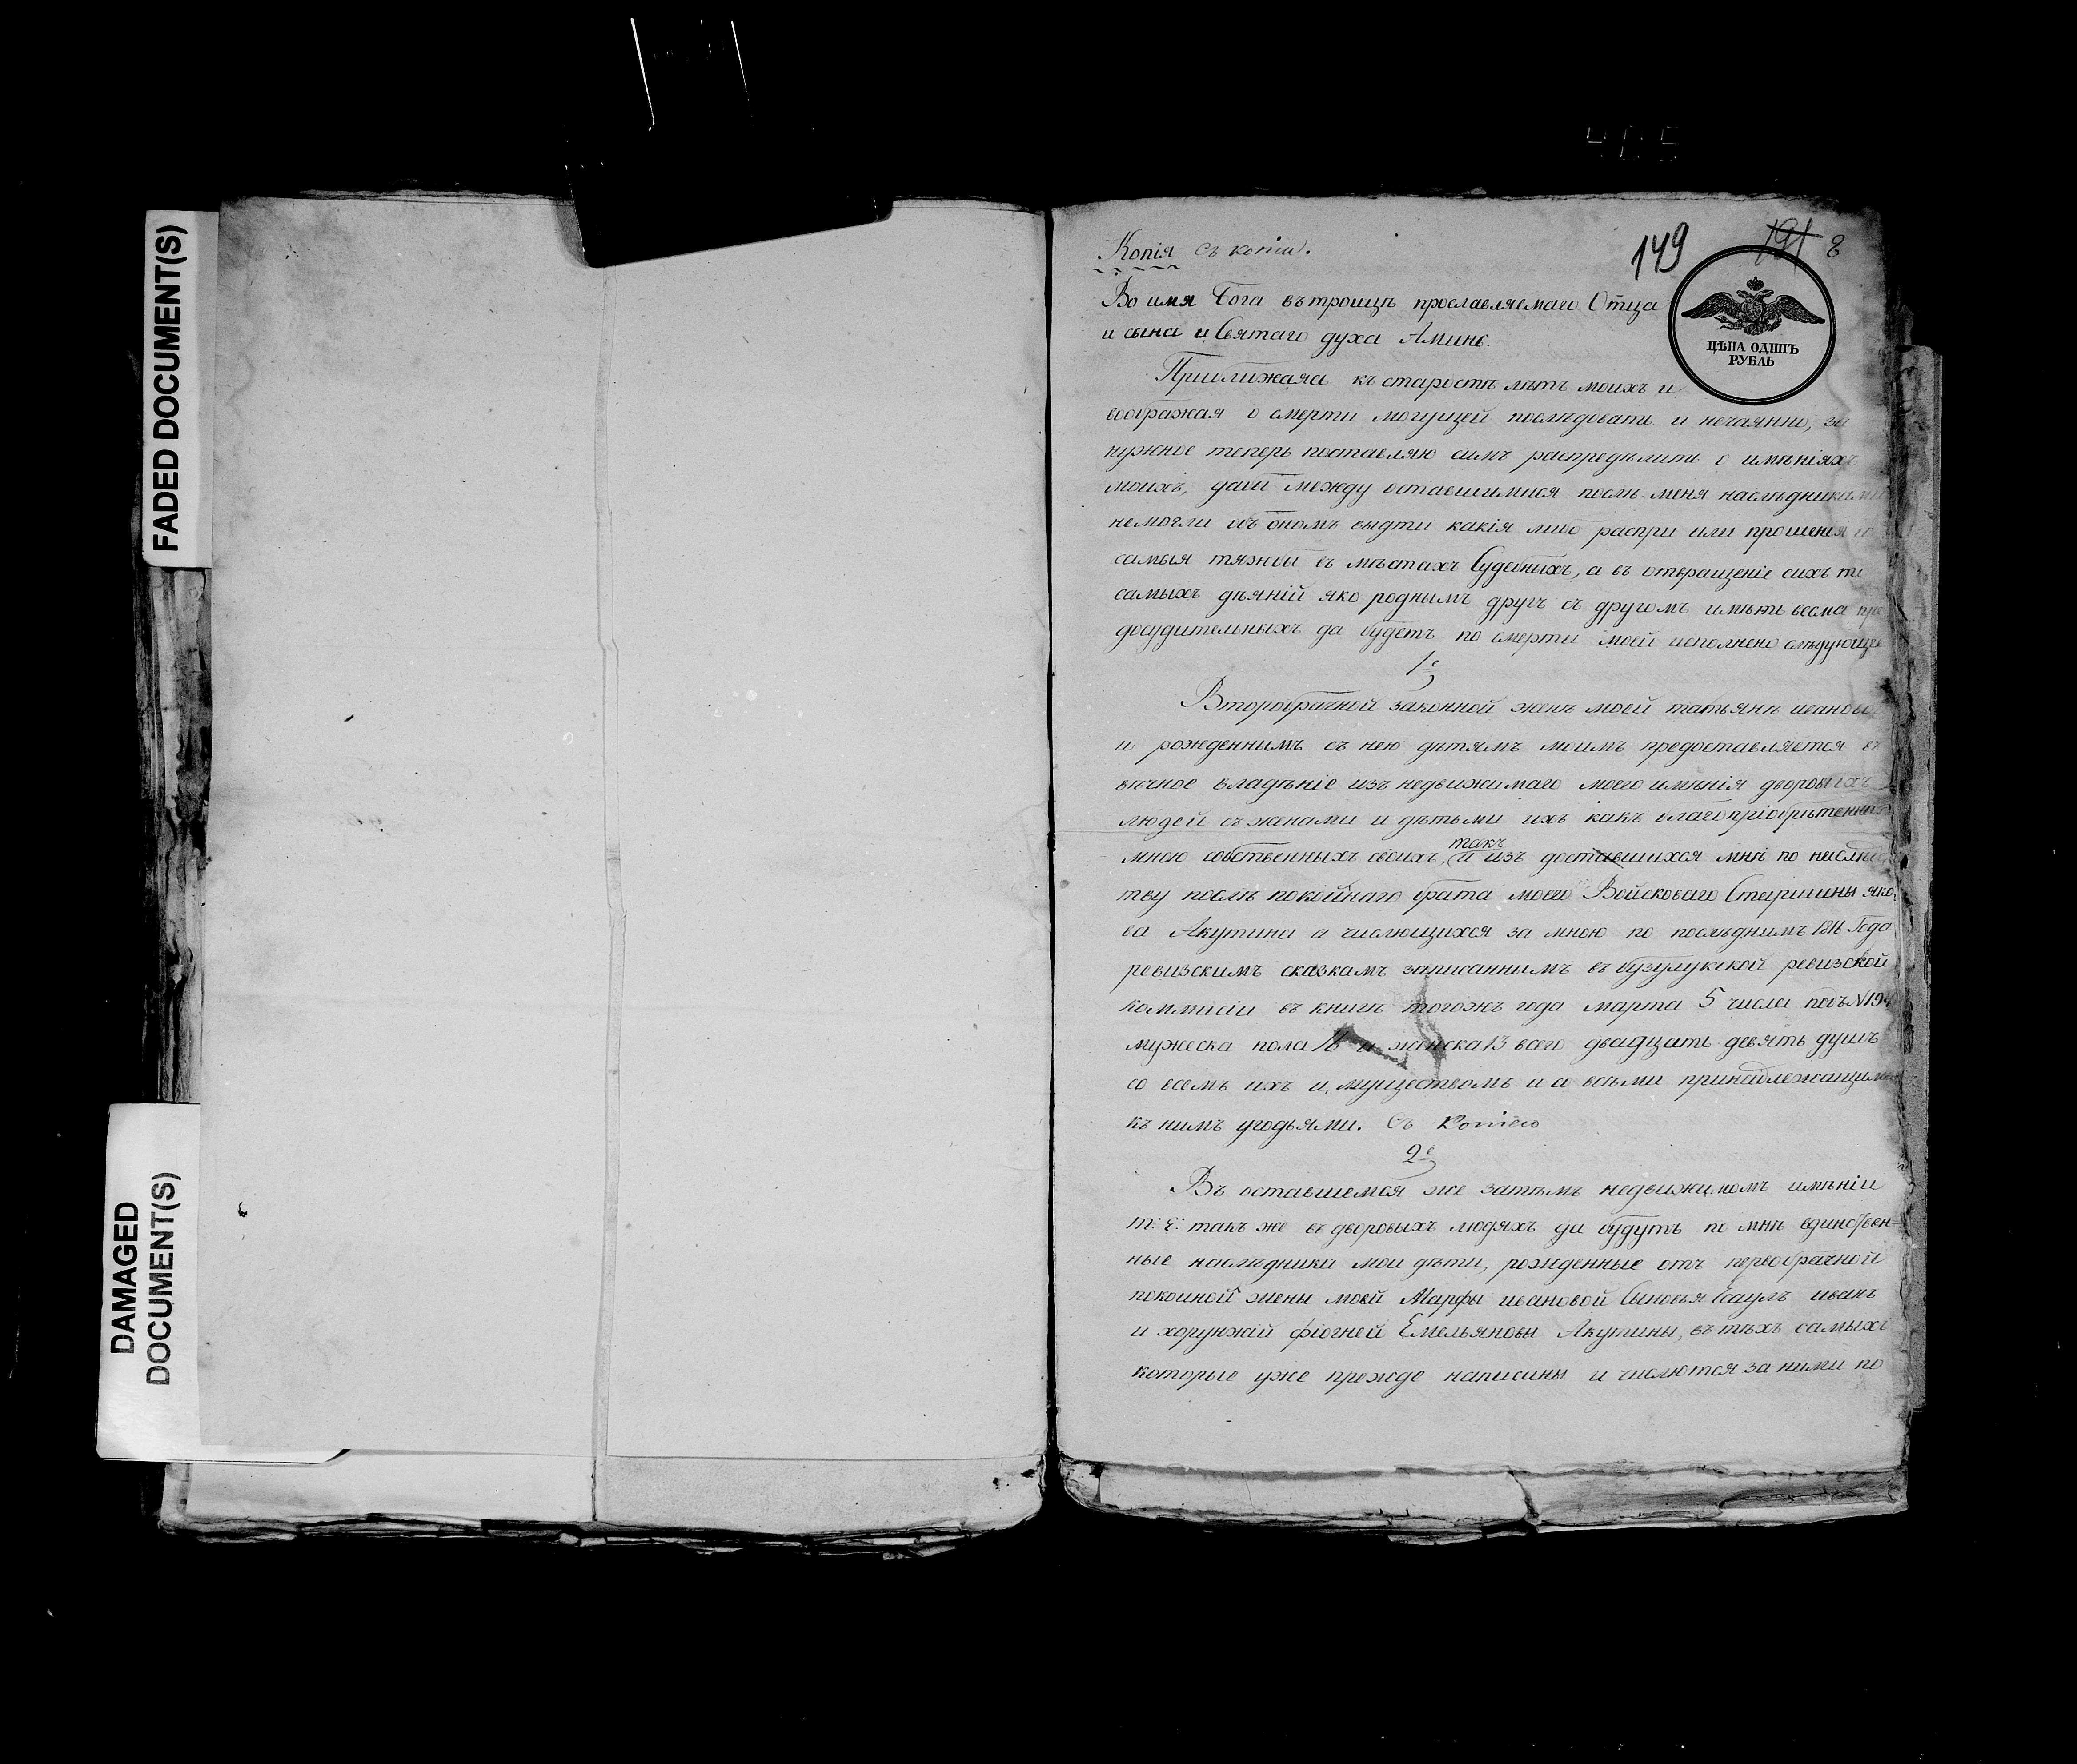 FADED DOCUMENT(S)
DAMAGED
DOCUMENT(S)
149
191
8
ЦѢНА ОДИНЪ
РУБЛЬ
Копія съ копіи.
Во имя Бога въ троицѣ прославляемаго Отца
и сына и Святаго духа Аминь.
Приближаясь къ старости лѣтъ моихъ и
воображая о смерти могущей послѣдовать и нечаянно, за
нужное теперь поставляю симъ распредѣлить о имѣніяхъ
моихъ, дабы между оставшимися послѣ меня наслѣдниками
немогли объ ономъ выдти какія либо распри или прошения и
самыя тяжбы въ мѣстахъ Судебныхъ, а въ отвращеніе сихъ
самыхъ дѣяній яко роднымъ другъ съ другомъ имѣть весма пре
досудительныхъ да будетъ по смерти моей исполнено слѣдующее
1е
Второбрачной законной женѣ моей татьянѣ ивановой
и рожденнымъ съ нею дѣтямъ моимъ предоставляется въ
вѣчное владѣніе изъ недвижимаго моего имѣнія дворовыхъ
людей съ женами и дѣтьми ихъ какъ благопріобрѣтенныхъ
мною собственныхъ своихъ, такъ и изъ доставшихся мнѣ по наслѣдс
тву послѣ покойнаго брата моего Войсковаго Старшины яко
ва Акутина а числющихся за мною по послѣднимъ 1811 Года
ревизскимъ сказкамъ записаннымъ въ бузулукской ревизской
коммисіи въ книгѣ тогожъ года марта 5 числа подъ N 194
мужеска пола 16 и женска 13 всего двадцать девять душъ
со всемъ ихъ имуществомъ и со всѣми принадлежащими
къ нимъ угодьями. Съ копіею
2е
Въ оставшемся же затѣмъ недвижимомъ имѣніи
т: е: такъ же въ дворовыхъ людяхъ да будутъ по мнѣ единствен=
ные наслѣдники мои дѣти, рожденные отъ первобрачной
покойной жены моей Марфы ивановой Сыновья Есаулъ иванъ
и хорунжій фіогней Емельяновы Акутины, въ тѣхъ самыхъ
которые уже прежде написаны и числются за ними по